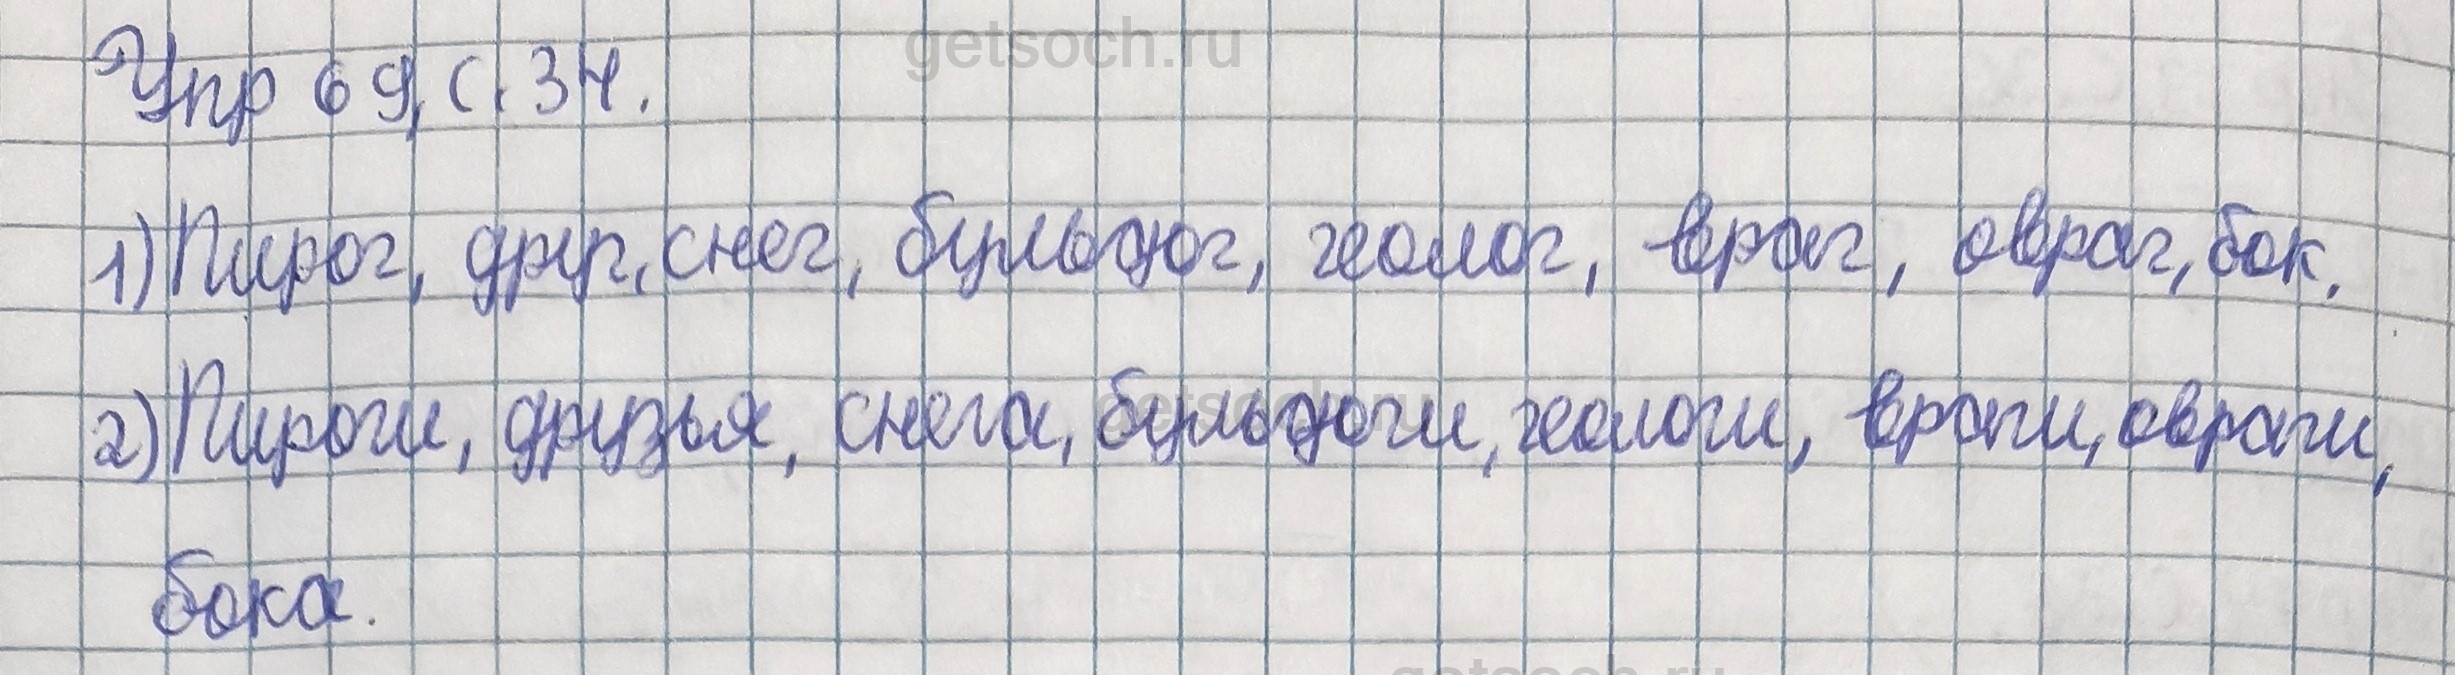 getsoch.ru
Упр 69, с. 34.
1) Пирог, друг, снег, бульдог, геолог, враг, овраг, бок.
getsoch.ru
2) Пироги, друзья, снега, бульдоги, геологи, враги, овраги,
бока.
getsoch.ru